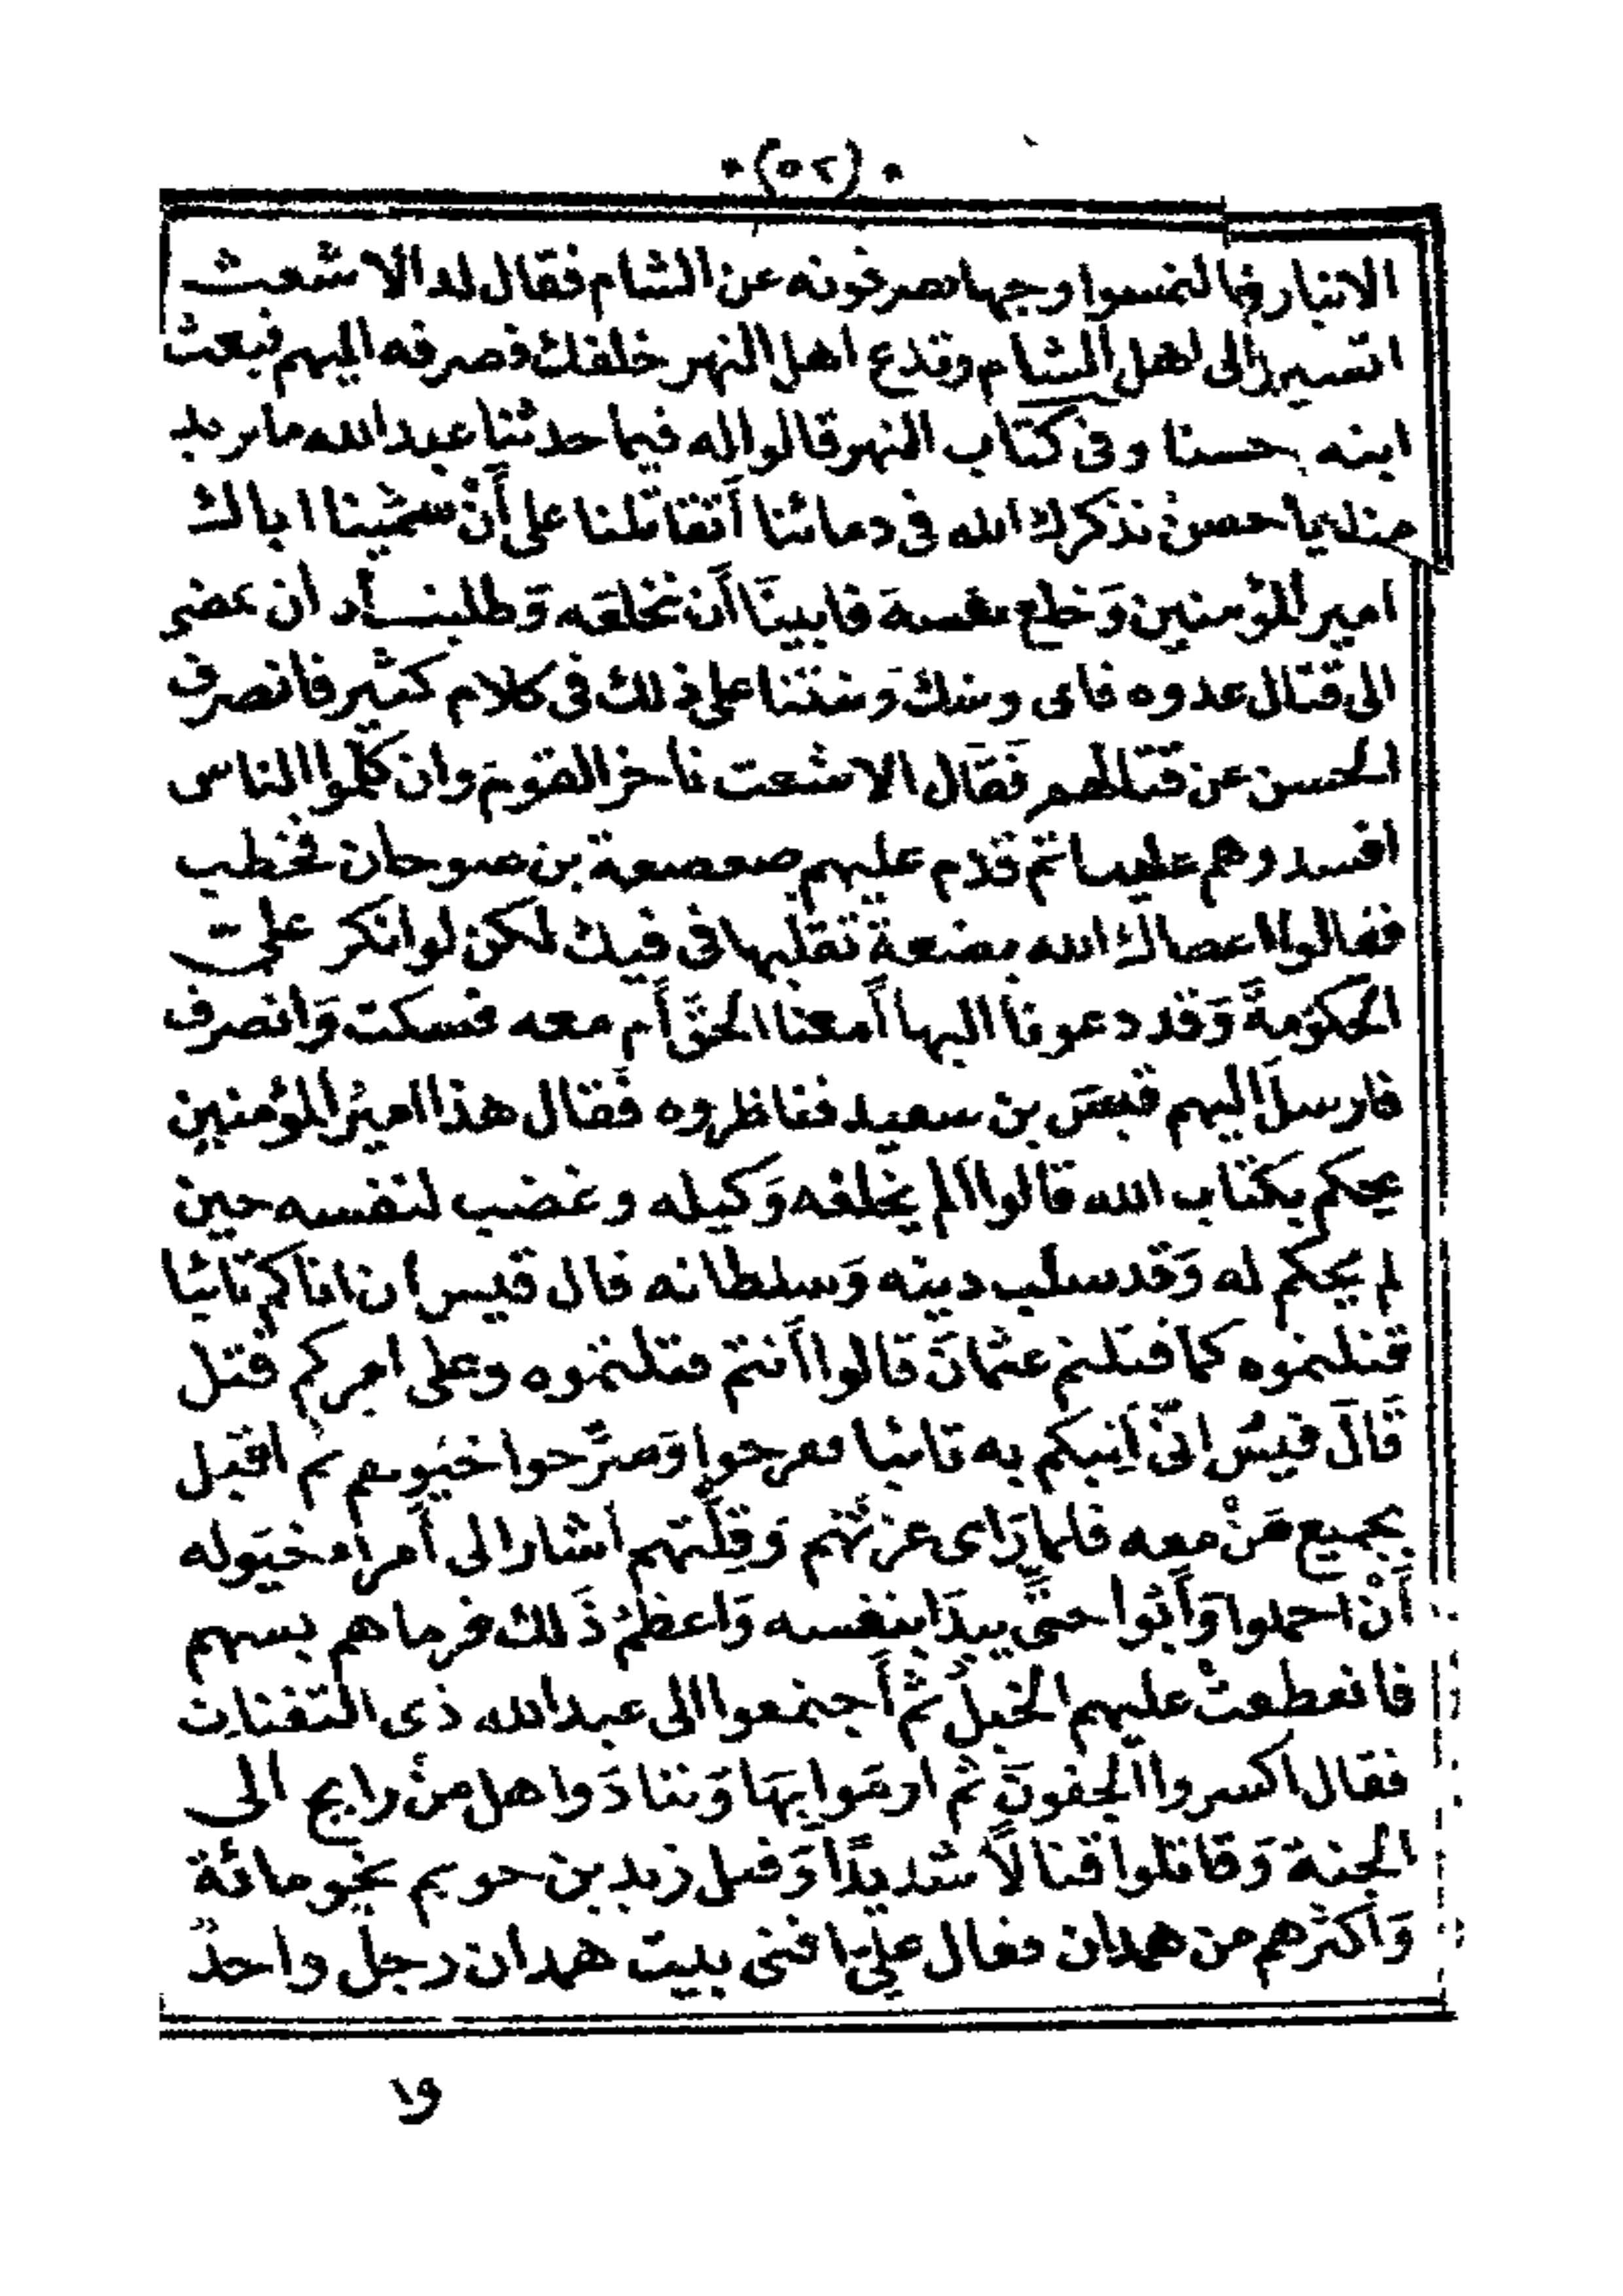 (٥٢)
الانبار فالتمسوا وجها يصرفونه عن الشام فقال له الاشعث
اتسير الى اهل الشام وتدع اهل النهر خلفك فصرفه اليهم فبعث
ابنه حسنا وفى كتاب النهر قالوا له فيما حدثنا عبد الله ما يريد
منا يا حسن نذكرك الله فى دمائنا أتقاتلنا على أن سمّينا اباك
امير المؤمنين وَخلع نفسه فابينَا أن نخلعَه وَطلبنا أن يمضى
الى قتال عدوه فابى وشك وَشتنا على ذلك فى كلام كثير فانصرف
الحسن عن قتالهم فقال الاشعث ناخز القومَ وان كلموا الناس
افسدوهم علينا ثم قدم عليهم صعصعة بن صوحان فخطب
فقالوا اعطاك الله بضعة تقلبها فى فيك لكن لو انكر علىّ
الحكومةَ وَقد دعونا اليها أمعنا الحقّ أم معه فسكت وَانصرف
فارسلَ اليهم قيسَ بن سعيد فناظروه فقال هذا اميرُ المؤمنين
يحكم بكتاب الله قالوا ألم يخلعه وَكيله وغضب لنفسه حين
لم يحكم له وَقد سلب دينه وَسلطانه قال قيس ان اتاكم تائبا
قتلتموه كما قتلتم عثمانَ قالوا أنتم قتلتموه وعلى امركم قتل
قَالَ قيسُ انّى اتيكم به تائبا ففرحوا وَصرّحوا خيولهم ثم اقبل
بجميع مَنْ معه فلما رَاى عزتهم وَقِلّتهم أشار الى أمراء خيَوله
أنْ احملوا وَأبوا حتىّ يبدَا بنفسه وَاعظمَ ذَلك فرماهم بسهم
فانعطفتْ عليهم الخيلُ ثم أجتمعوا الى عبد الله ذى الثفنات
فقال اكسروا الجفونَ ثم ارمَوا بهَا وَتنادَوا هل من رايح الى
الجنة وَقاتلوا قتالاً شديدًا وَقتل زيد بن حويم نحو مائة
وَأكثرهم من همدان فقال علىّ افنى بيت همدان رجل واحد
وا